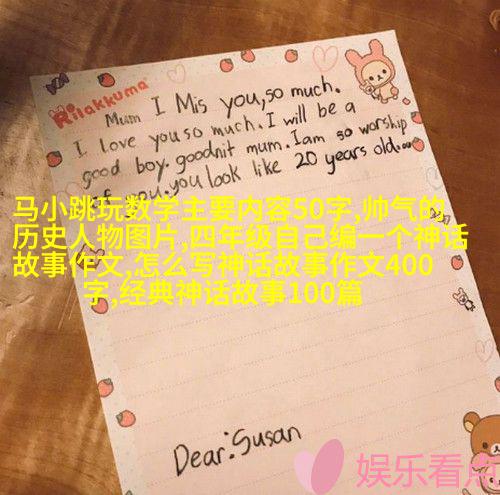 Rilakkuma
Mum I Mis you, so much.
I love you so much. I will be a
good boy. goodnit mum. I am so worship
of you. you look like 20 years old.
马小跳玩数学主要内容50字,帅气的
历史人物图片,四年级自己编一个神话
故事作文,怎么写神话故事作文400
字,经典神话故事100篇
Dear: Susan
娱乐看点